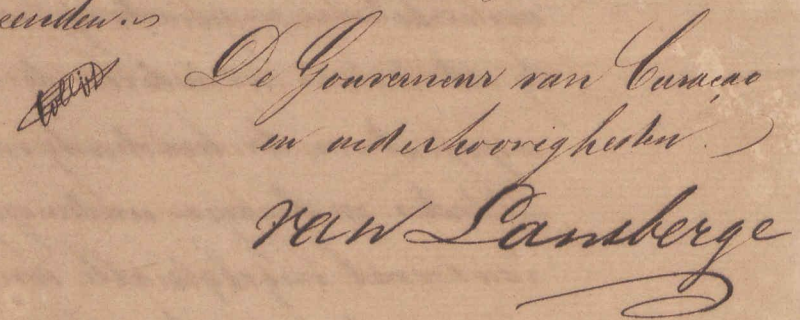 eenden.
De Gouverneur van Curaçao
en onderhoorigheden.
van Lansberge